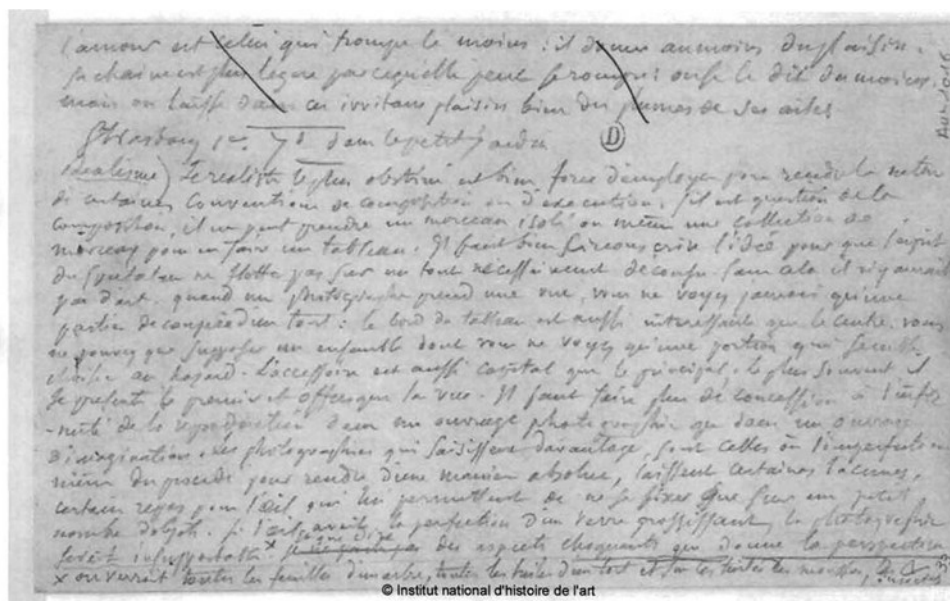 l'amour est celui qui trompe le moins : il donne au moins du plaisir.
sa chaine est plus legere parcequelle peut se rompre : on se le dit du moins.
mais on laisse dans ces irritans plaisirs bien des plumes de ses ailes
Strasbourg 1er 7b dans le petit jardin
D
idealisme) Le realiste le plus obstiné est bien forcé d'employer pour rendre la nature
de certaines conventions de composition ou d'execution. s'il est question de la
composition, il ne peut prendre un morceau isolé ou même une collection de
morceaux pour en faire un tableau. Il faut bien circonscrire l'idée pour que l'esprit
du spectateur ne flotte pas sur un tout nécessairement decousu. sans cela il n'y aurait
pas d'art. quand un photographe prend une vue, vous ne voyez jamais qu'une
partie decoupée d'un tout : le bord du tableau est aussi interessant que le centre. vous
ne pouvez que supposer un ensemble dont vous ne voyez qu'une portion qui semble
choisie au hazard. L'accessoire est aussi capital que le principal. le plus souvent il
se presente le premier et offusque la vue. Il faut faire plus de concession à l'infir
-mité de la reproduction dans un ouvrage photographié que dans un ouvrage
d'imagination. Les photographies qui saisissent davantage, sont celles où l'imperfection
même du procédé pour rendre d'une manière absolue, laissent certaines lacunes,
certain repos pour l'œil qui lui permettent de ne se fixer que sur un petit
nombre d'objets. si l'œil avait la perfection d'un verre grossissant, la photographie
serait insupportable x des aspects choquants que donne la perspective
x on verrait toutes les feuilles d'un arbre, toutes les tuiles d'un toit et sur les tuiles les mousses, les
insectes
© Institut national d'histoire de l'art